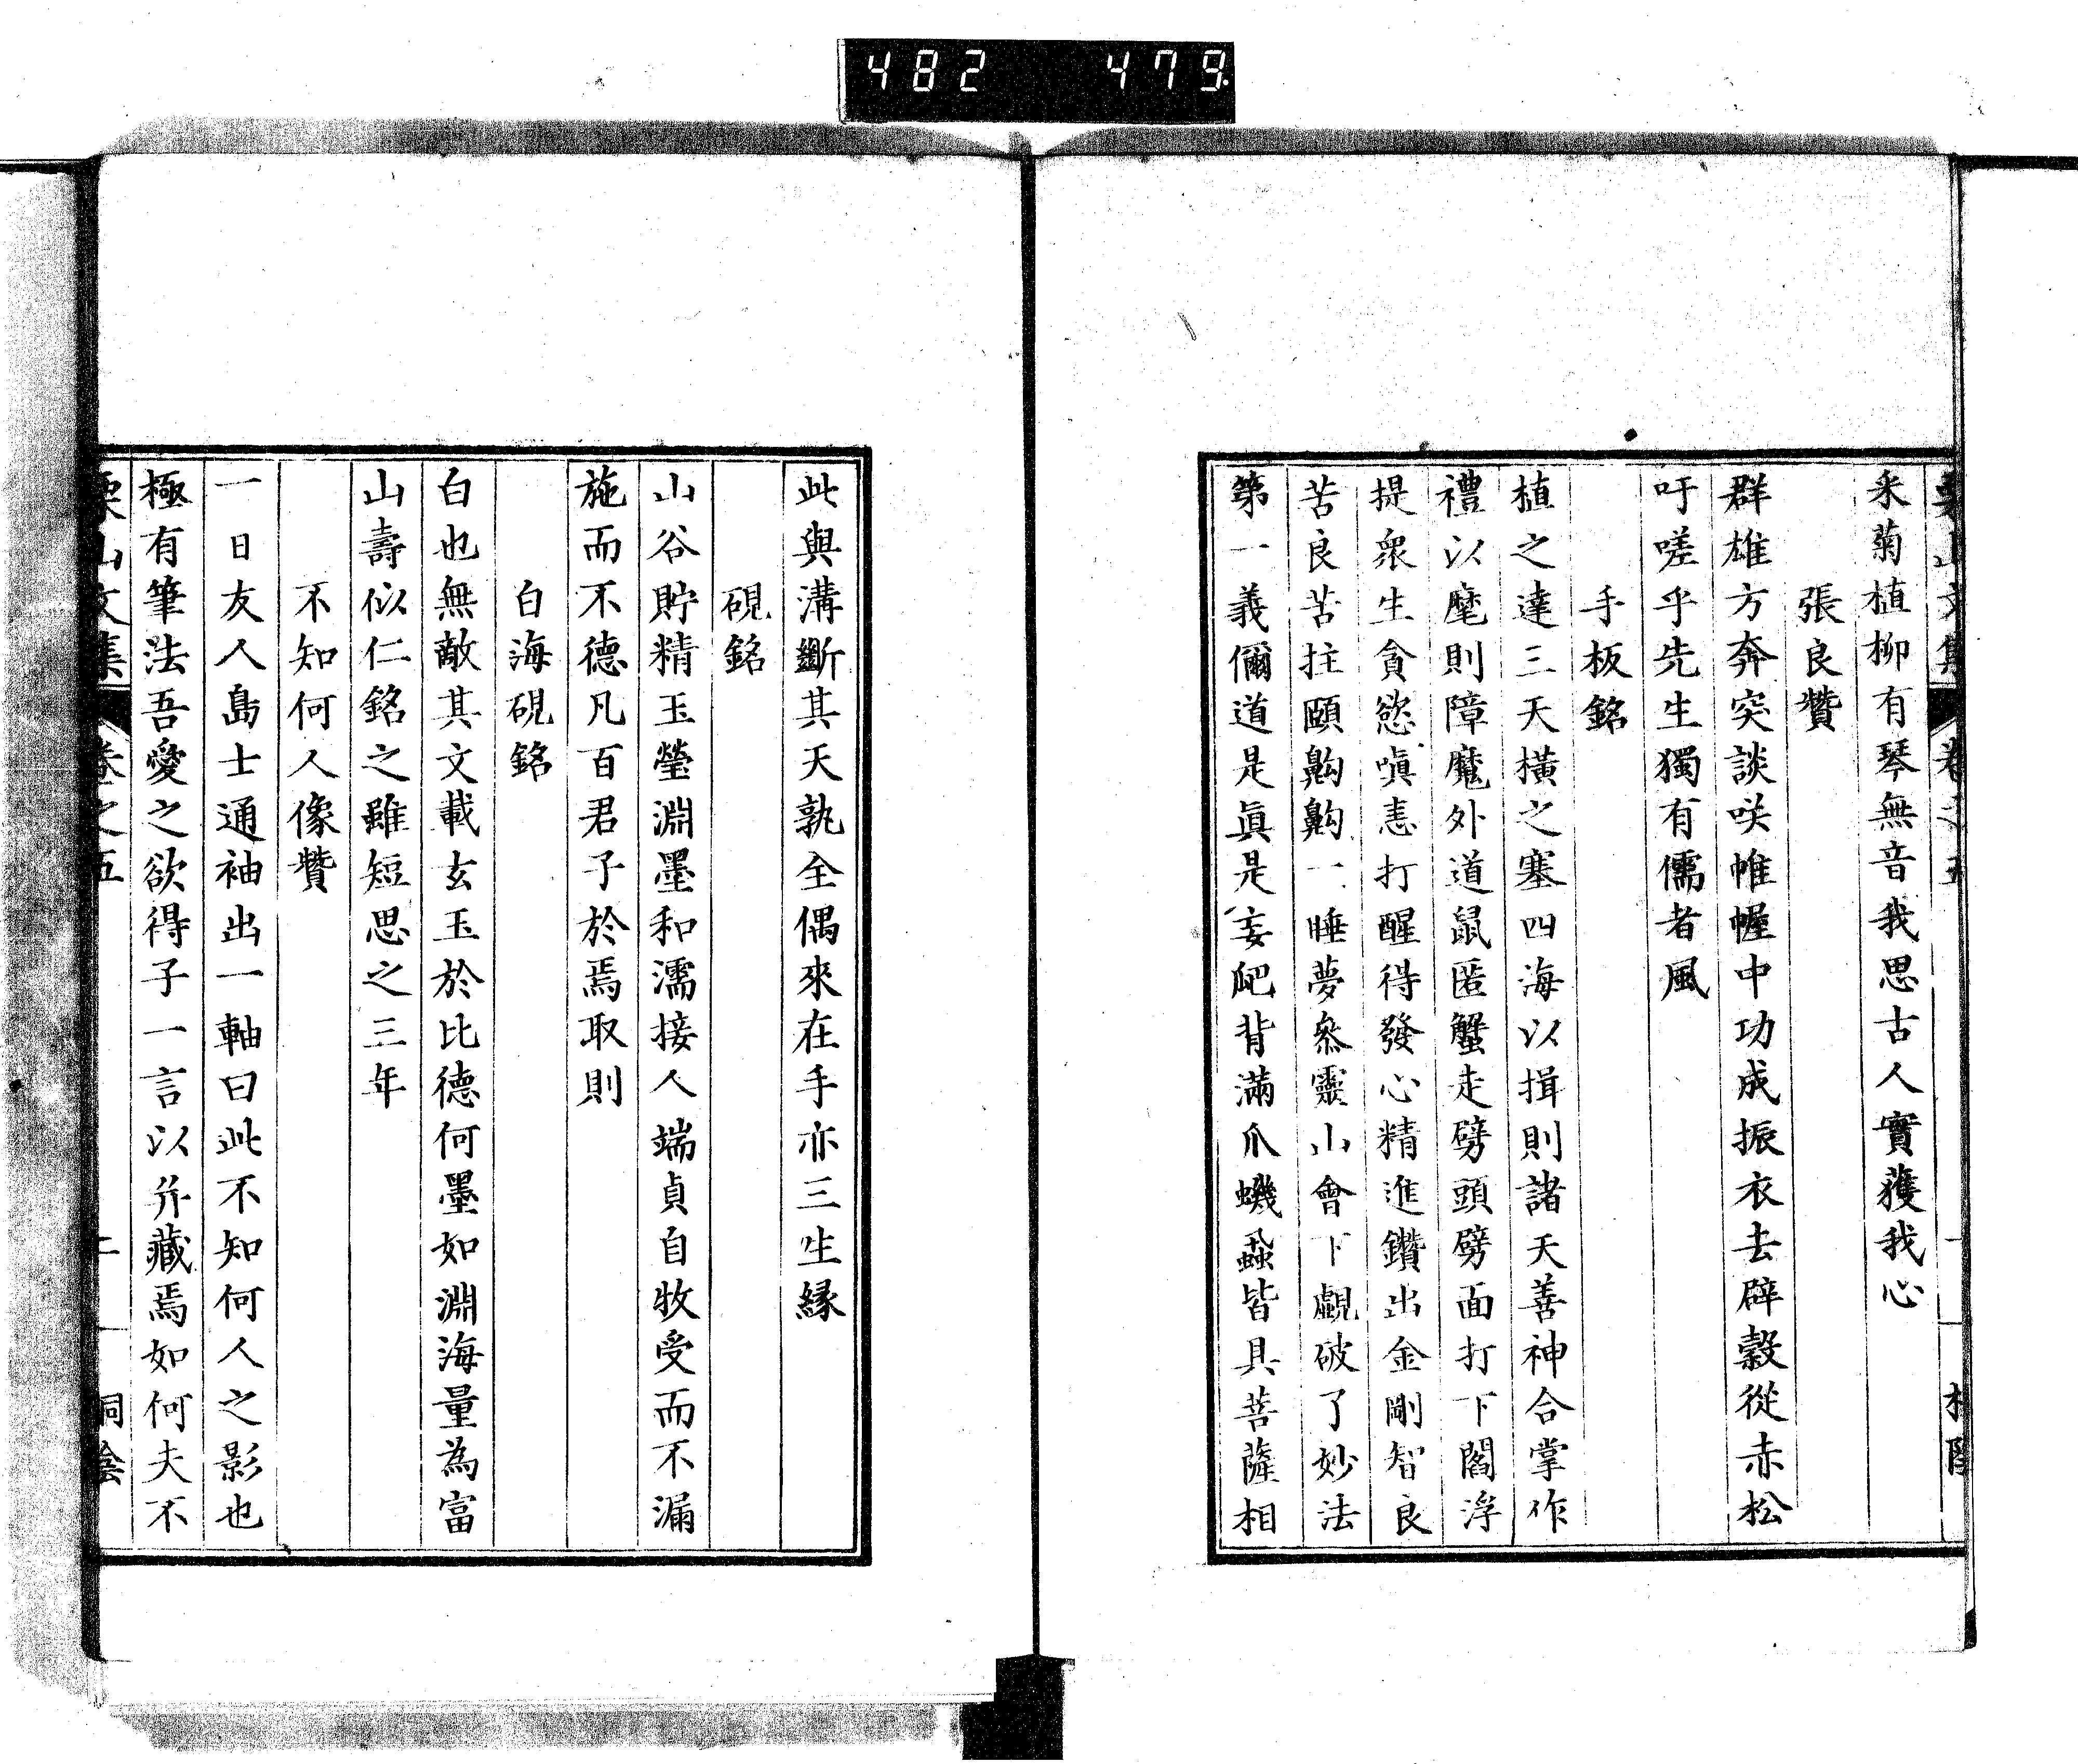 482 479
采菊植柳有琴無音我思古人實獲我心
張良贊
群雄方奔突談咲帷幄中功成振衣去辟穀從赤松
吁嗟乎先生獨有儒者風
手板銘
植之達三天橫之塞四海以揖則諸天善神合掌作
禮以麾則障魔外道鼠匿蟹走劈頭劈面打下閻浮
提衆生貪慾嗔恚打醒得發心精進鑽出金剛智良
苦良苦拄頤齁齁一睡夢叅靈山會下覰破了妙法
第一義儞道是眞是妄爬背滿爪蟣蝨皆具菩薩相
此與溝斷其天孰全偶來在手亦三生緣
硯銘
山谷貯精玉瑩淵墨和濡接人端貞自牧受而不漏
施而不德凡百君子於焉取則
白海硯銘
白也無敵其文載玄玉於比德何墨如淵海量為富
山壽似仁銘之雖短思之三年
不知何人像贊
一日友人島士通袖出一軸曰此不知何人之影也
極有筆法吾愛之欲得子一言以弁藏焉如何夫不
栗山文集 卷之五 二 桐陰